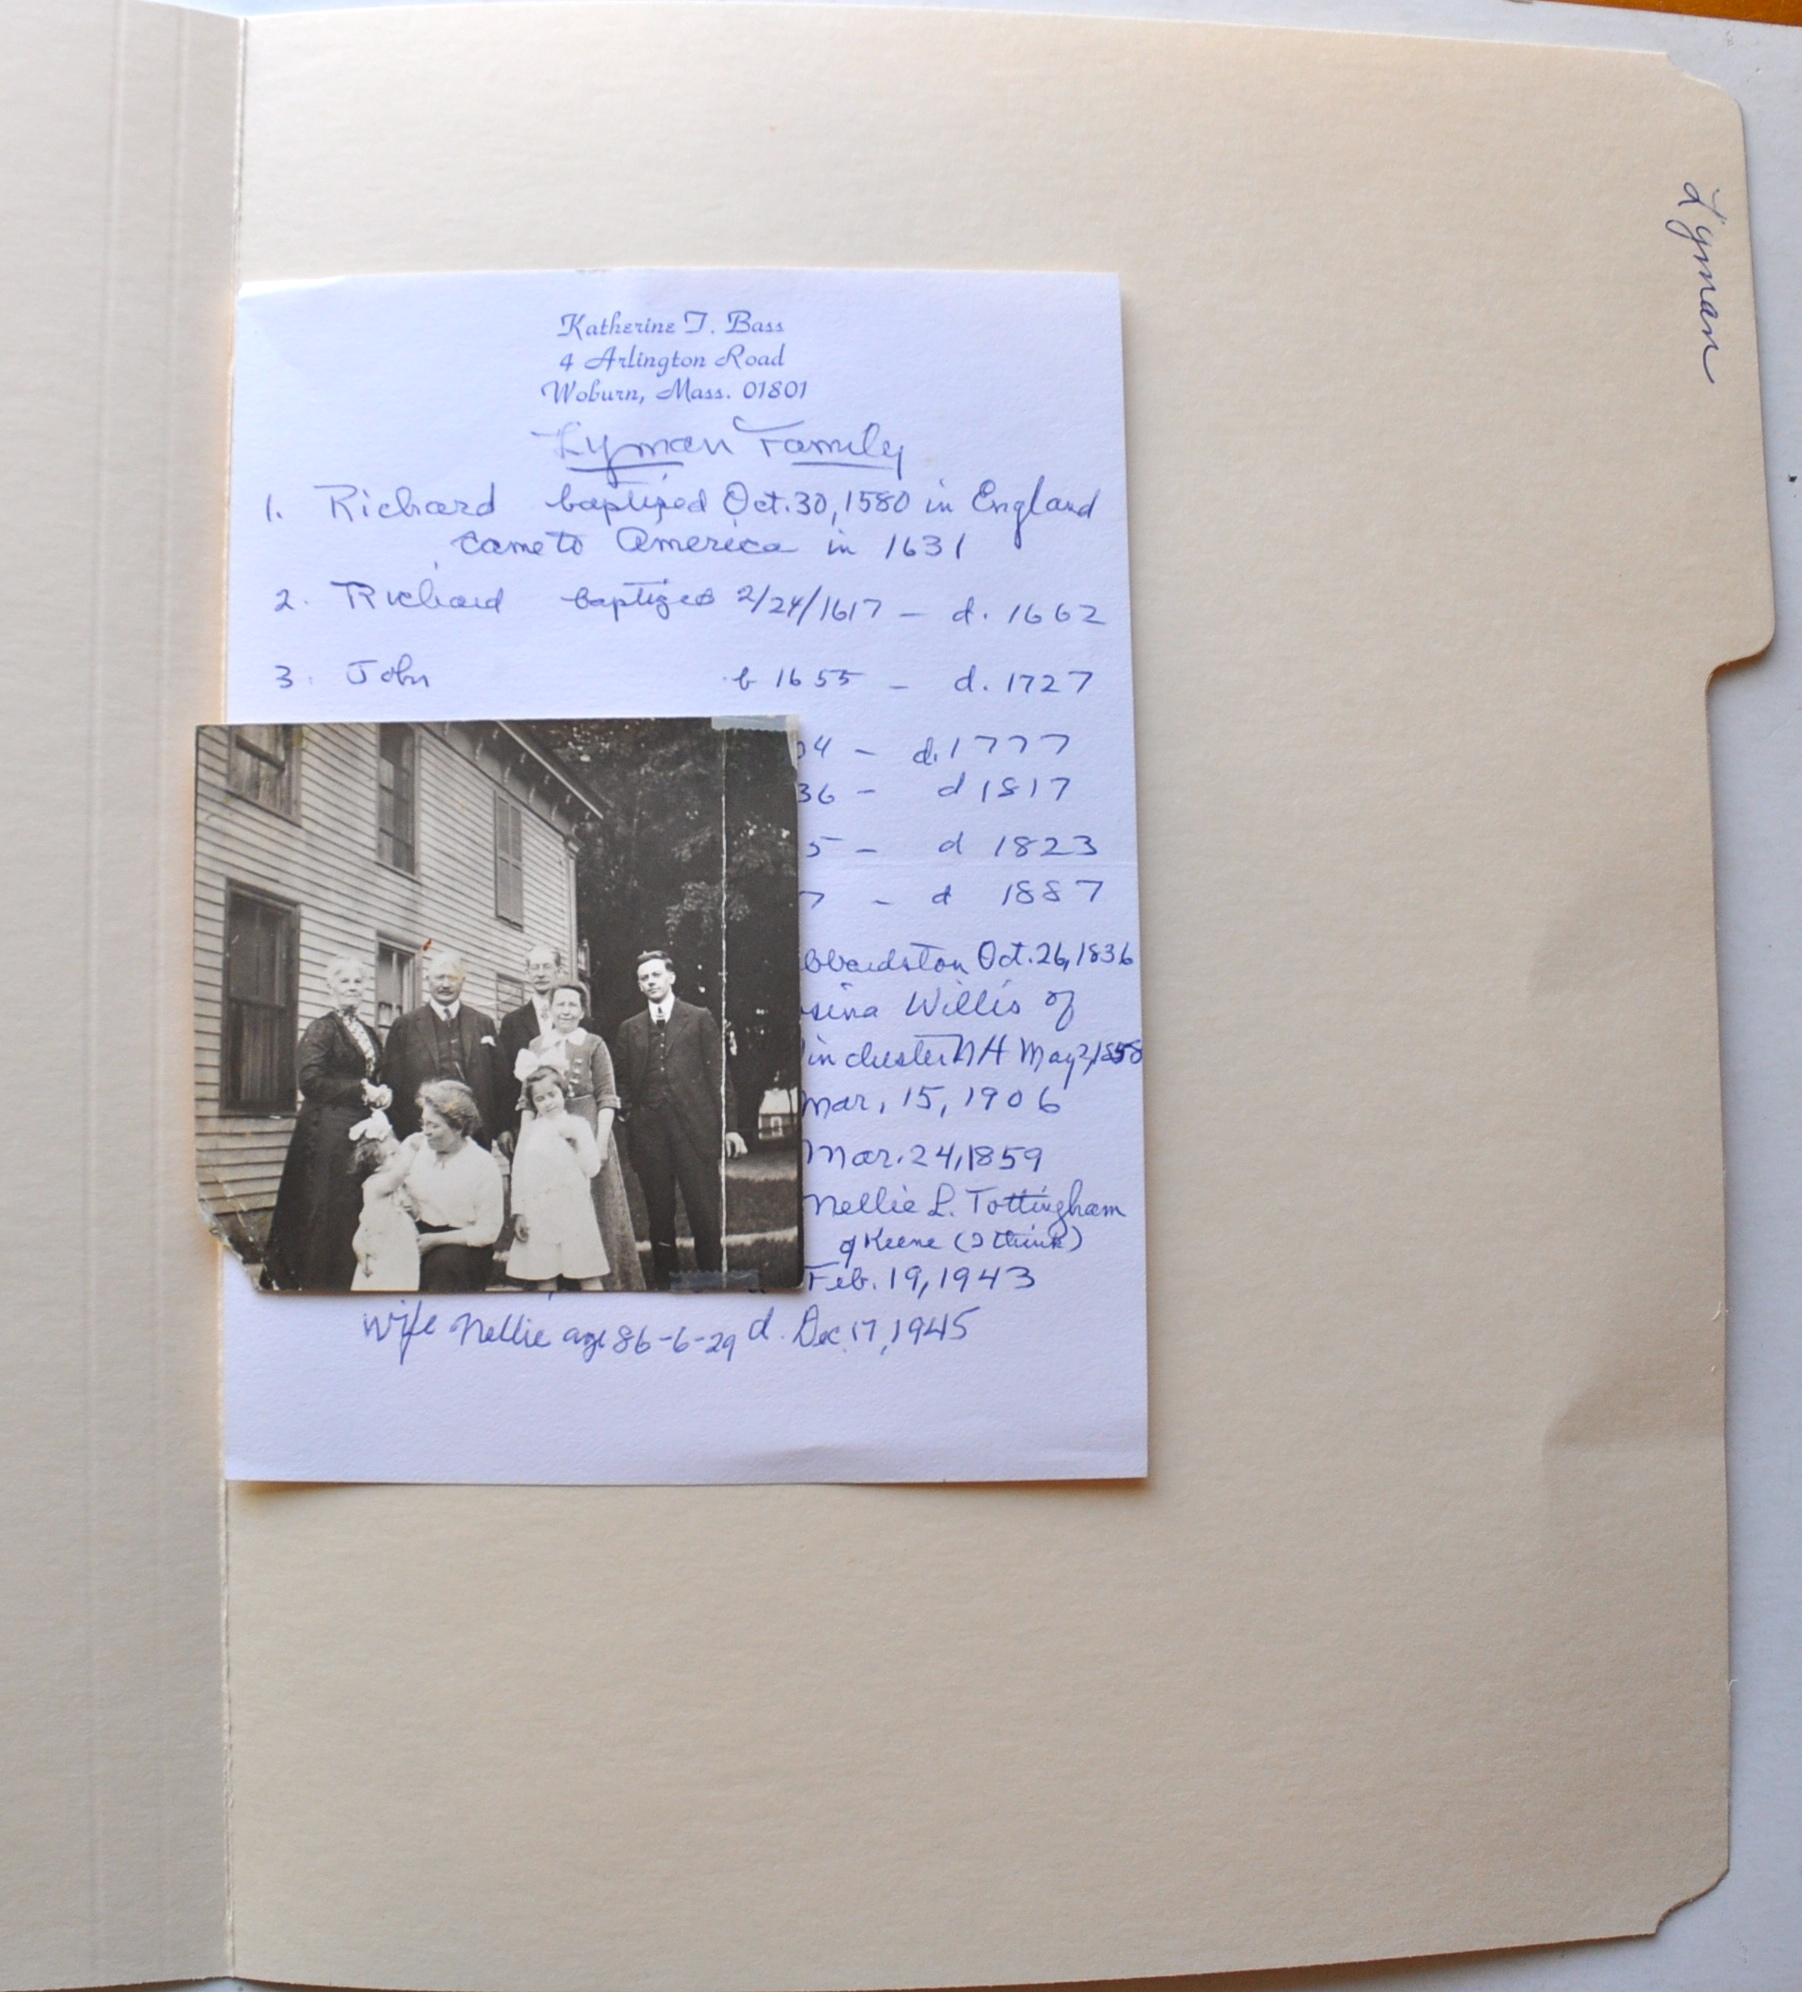 Lyman
Katherine T. Bass
4 Arlington Road
Woburn, Mass. 01801
Lyman Family
1. Richard baptized Oct. 30, 1580 in England
came to America in 1631
2. Richard baptized 2/24/1617 - d. 1662
3. John b 1655 - d. 1727
04 - d. 1777
36 - d 1817
5 - d 1823
7 - d 1887
bbardston Oct. 26, 1836
sina Willis of
inchester NH May 2, 1858
Mar, 15, 1906
Mar. 24, 1859
Nellie L. Tottingham
of Keene (I think)
Feb. 19, 1943
Wife Nellie age 86-6-29 d. Dec. 17, 1945